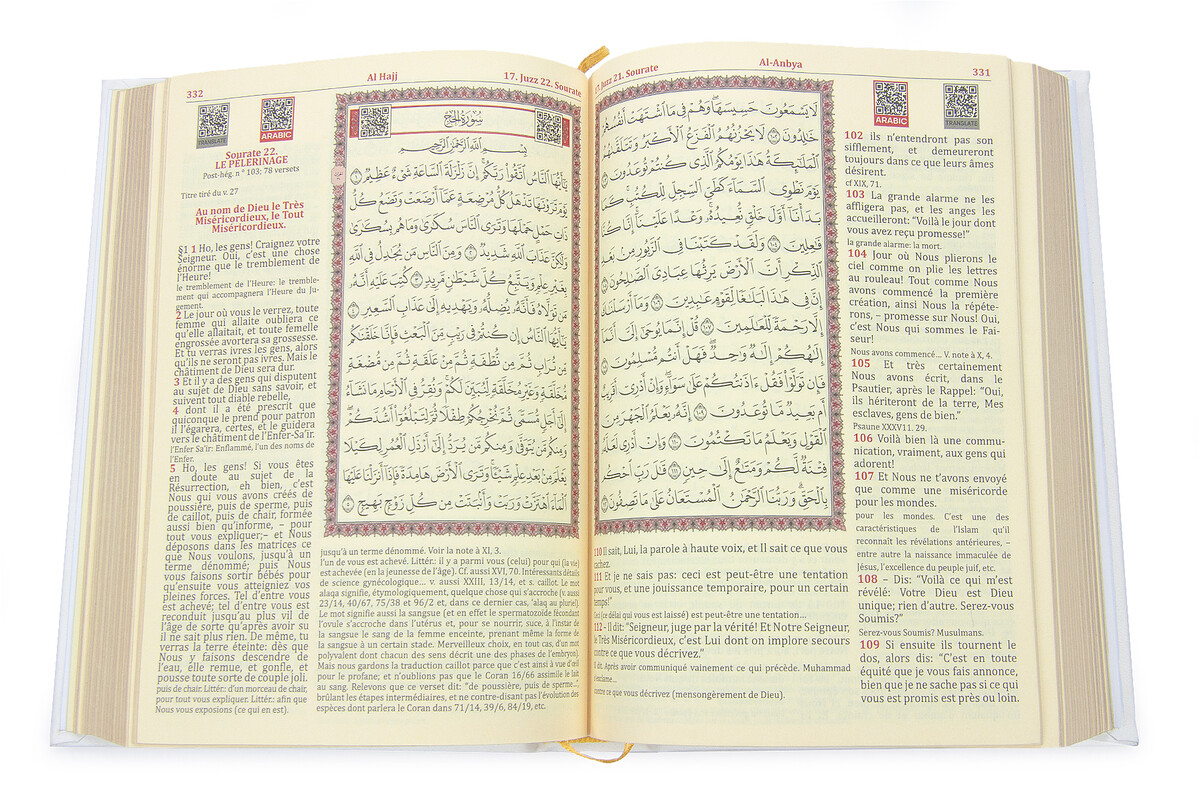 Al-Anbya
331
17. Juzz 21. Sourate
ARABIC
TRANSLATE
لَا يَسْمَعُونَ حَسِيسَهَا ۖ وَهُمْ فِي مَا ٱشْتَهَتْ أَنفُسُهُمْ
خَٰلِدُونَ ١٠٢ لَا يَحْزُنُهُمُ ٱلْفَزَعُ ٱلْأَكْبَرُ وَتَتَلَقَّىٰهُمُ
ٱلْمَلَٰٓئِكَةُ هَٰذَا يَوْمُكُمُ ٱلَّذِي كُنتُمْ تُوعَدُونَ ١٠٣
يَوْمَ نَطْوِي ٱلسَّمَآءَ كَطَيِّ ٱلسِّجِلِّ لِلْكُتُبِ ۚ كَمَا
بَدَأْنَآ أَوَّلَ خَلْقٍ نُّعِيدُهُۥ ۚ وَعْدًا عَلَيْنَآ ۚ إِنَّا كُنَّا
فَٰعِلِينَ ١٠٤ وَلَقَدْ كَتَبْنَا فِي ٱلزَّبُورِ مِنۢ بَعْدِ
ٱلذِّكْرِ أَنَّ ٱلْأَرْضَ يَرِثُهَا عِبَادِيَ ٱلصَّٰلِحُونَ ١٠٥
إِنَّ فِي هَٰذَا لَبَلَٰغًا لِّقَوْمٍ عَٰبِدِينَ ١٠٦ وَمَآ أَرْسَلْنَٰكَ
إِلَّا رَحْمَةً لِّلْعَٰلَمِينَ ١٠٧ قُلْ إِنَّمَا يُوحَىٰٓ إِلَيَّ أَنَّمَآ
إِلَٰهُكُمْ إِلَٰهٌ وَٰحِدٌ ۖ فَهَلْ أَنتُم مُّسْلِمُونَ ١٠٨
فَإِن تَوَلَّوْا۟ فَقُلْ ءَاذَنتُكُمْ عَلَىٰ سَوَآءٍ ۖ وَإِنْ أَدْرِيٓ أَقَرِيبٌ
أَم بَعِيدٌ مَّا تُوعَدُونَ ١٠٩ إِنَّهُۥ يَعْلَمُ ٱلْجَهْرَ مِنَ
ٱلْقَوْلِ وَيَعْلَمُ مَا تَكْتُمُونَ ١١٠ وَإِنْ أَدْرِي لَعَلَّهُۥ
فِتْنَةٌ لَّكُمْ وَمَتَٰعٌ إِلَىٰ حِينٍ ١١١ قَٰلَ رَبِّ ٱحْكُم
بِٱلْحَقِّ ۗ وَرَبُّنَا ٱلرَّحْمَٰنُ ٱلْمُسْتَعَانُ عَلَىٰ مَا تَصِفُونَ ١١٢
102 ils n’entendront pas son
sifflement, et demeureront
toujours dans ce que leurs âmes
désirent.
cf XIX, 71.
103 La grande alarme ne les
affligera pas, et les anges les
accueilleront: “Voilà le jour dont
vous avez reçu promesse!”
la grande alarme: la mort.
104 Jour où Nous plierons le
ciel comme on plie les lettres
au rouleau! Tout comme Nous
avons commencé la première
création, ainsi Nous la répéte-
rons, – promesse sur Nous! Oui,
c’est Nous qui sommes le Fai-
seur!
Nous avons commencé... V. note à X, 4.
105 Et très certainement
Nous avons écrit, dans le
Psautier, après le Rappel: “Oui,
ils hériteront de la terre, Mes
esclaves, gens de bien.”
Psaune XXXV11. 29.
106 Voilà bien là une commu-
nication, vraiment, aux gens qui
adorent!
107 Et Nous ne t’avons envoyé
que comme une miséricorde
pour les mondes.
pour les mondes. C’est une des
caractéristiques de l’Islam qu’il
reconnaît les révélations antérieures, –
entre autre la naissance immaculée de
Jésus, l’excellence du peuple juif, etc.
108 – Dis: “Voilà ce qui m’est
révélé: Votre Dieu est Dieu
unique; rien d’autre. Serez-vous
Soumis?”
Serez-vous Soumis? Musulmans.
109 Si ensuite ils tournent le
dos, alors dis: “C’est en toute
équité que je vous fais annonce,
bien que je ne sache pas si ce qui
vous est promis est près ou loin.
110 Il sait, Lui, la parole à haute voix, et Il sait ce que vous
cachez.
111 Et je ne sais pas: ceci est peut-être une tentation
pour vous, et une jouissance temporaire, pour un certain
temps!”
Ceci (ce délai qui vous est laissé) est peut-être une tentation...
112 - Il dit: “Seigneur, juge par la vérité! Et Notre Seigneur,
le Très Miséricordieux, c’est Lui dont on implore secours
contre ce que vous décrivez.”
Il dit. Après avoir communiqué vainement ce qui précède. Muhammad
s’exclame...
contre ce que vous décrivez (mensongèrement de Dieu).
332
Al Hajj
17. Juzz 22. Sourate
TRANSLATE
ARABIC
Sourate 22.
LE PELERINAGE
Post-hég. n ° 103; 78 versets
Titre tiré du v. 27
Au nom de Dieu le Très
Miséricordieux, le Tout
Miséricordieux.
§1 1 Ho, les gens! Craignez votre
Seigneur. Oui, c’est une chose
énorme que le tremblement de
l’Heure!
le tremblement de l’Heure: le tremble-
ment qui accompagnera l’Heure du Ju-
gement.
2 Le jour où vous le verrez, toute
femme qui allaite oubliera ce
qu’elle allaitait, et toute femelle
engrossée avortera sa grossesse.
Et tu verras ivres les gens, alors
qu’ils ne seront pas ivres. Mais le
châtiment de Dieu sera dur.
3 Et il y a des gens qui disputent
au sujet de Dieu sans savoir, et
suivent tout diable rebelle,
4 dont il a été prescrit que
quiconque le prend pour patron
il l’égarera, certes, et le guidera
vers le châtiment de l’Enfer-Sa’ïr.
l’Enfer Sa’ïr: Enflammé, l’un des noms de
l’Enfer.
5 Ho, les gens! Si vous êtes
en doute au sujet de la
Résurrection, eh bien, c’est
Nous qui vous avons créés de
poussière, puis de sperme, puis
de caillot, puis de chair, formée
aussi bien qu’informe, – pour
tout vous expliquer;– et Nous
déposons dans les matrices ce
que Nous voulons, jusqu’à un
terme dénommé; puis Nous
vous faisons sortir bébés pour
qu’ensuite vous atteigniez vos
pleines forces. Tel d’entre vous
est achevé; tel d’entre vous est
reconduit jusqu’au plus vil de
l’âge de sorte qu’après avoir su
il ne sait plus rien. De même, tu
verras la terre éteinte: dès que
Nous y faisons descendre de
l’eau, elle remue, et gonfle, et
pousse toute sorte de couple joli.
puis de chair. Littér: d’un morceau de chair,
pour tout vous expliquer. Littér.: afin que
Nous vous exposions (ce qui en est).
سُورَةُ الحَجِّ
بِسْمِ ٱللَّهِ ٱلرَّحْمَٰنِ ٱلرَّحِيمِ
يَٰٓأَيُّهَا ٱلنَّاسُ ٱتَّقُوا۟ رَبَّكُمْ ۚ إِنَّ زَلْزَلَةَ ٱلسَّاعَةِ شَيْءٌ عَظِيمٌ ١
يَوْمَ تَرَوْنَهَا تَذْهَلُ كُلُّ مُرْضِعَةٍ عَمَّآ أَرْضَعَتْ وَتَضَعُ كُلُّ
ذَاتِ حَمْلٍ حَمْلَهَا وَتَرَى ٱلنَّاسَ سُكَٰرَىٰ وَمَا هُم بِسُكَٰرَىٰ
وَلَٰكِنَّ عَذَابَ ٱللَّهِ شَدِيدٌ ٢ وَمِنَ ٱلنَّاسِ مَن يُجَٰدِلُ فِي ٱللَّهِ
بِغَيْرِ عِلْمٍ وَيَتَّبِعُ كُلَّ شَيْطَٰنٍ مَّرِيدٍ ٣ كُتِبَ عَلَيْهِ أَنَّهُۥ
مَن تَوَلَّاهُ فَأَنَّهُۥ يُضِلُّهُۥ وَيَهْدِيهِ إِلَىٰ عَذَابِ ٱلسَّعِيرِ ٤
يَٰٓأَيُّهَا ٱلنَّاسُ إِن كُنتُمْ فِي رَيْبٍ مِّنَ ٱلْبَعْثِ فَإِنَّا خَلَقْنَٰكُم
مِّن تُرَابٍ ثُمَّ مِن نُّطْفَةٍ ثُمَّ مِنْ عَلَقَةٍ ثُمَّ مِن مُّضْغَةٍ
مُّخَلَّقَةٍ وَغَيْرِ مُخَلَّقَةٍ لِّنُبَيِّنَ لَكُمْ ۚ وَنُقِرُّ فِي ٱلْأَرْحَامِ مَا نَشَآءُ
إِلَىٰٓ أَجَلٍ مُّسَمًّى ثُمَّ نُخْرِجُكُمْ طِفْلًا ثُمَّ لِتَبْلُغُوٓا۟ أَشُدَّكُمْ ۖ
وَمِنكُم مَّن يُتَوَفَّىٰ وَمِنكُم مَّن يُرَدُّ إِلَىٰٓ أَرْذَلِ ٱلْعُمُرِ لِكَيْلَا
يَعْلَمَ مِنۢ بَعْدِ عِلْمٍ شَيْـًٔا ۚ وَتَرَى ٱلْأَرْضَ هَامِدَةً فَإِذَآ أَنزَلْنَا عَلَيْهَا
ٱلْمَآءَ ٱهْتَزَّتْ وَرَبَتْ وَأَنۢبَتَتْ مِن كُلِّ زَوْجٍۭ بَهِيجٍ ٥
jusqu’à un terme dénommé. Voir la note à XI, 3.
l’un de vous est achevé. Littér: il y a parmi vous (celui) pour qui (la vie)
est achevée (en la jeunesse de l’âge). Cf. aussi XVI, 70. Intéressants détails
de science gynécologique... v. aussi XXIII, 13/14, et s. caillot. Le mot
alaqa signifie, étymologiquement, quelque chose qui s’accroche (v. aussi
23/14, 40/67, 75/38 et 96/2 et, dans ce dernier cas, ’alaq au pluriel).
Le mot signifie aussi la sangsue (et en effet le spermatozoïde fécondant
l’ovule s’accroche dans l’utérus et, pour se nourrir, suce, à l’instar de
la sangsue le sang de la femme enceinte, prenant même la forme de
la sangsue à un certain stade. Merveilleux choix, en tout cas, d’un mot
polyvalent dont chacun des sens décrit une des phases de l’embryon).
Mais nous gardons la traduction caillot parce que c’est ainsi à vue d’œil
pour le profane; et n’oublions pas que le Coran 16/66 assimile le lait
au sang. Relevons que ce verset dit: “de poussière, puis de sperme...”,
brûlant les étapes intermédiaires, et ne contre-disant pas l’évolution des
espèces dont parlera le Coran dans 71/14, 39/6, 84/19, etc.